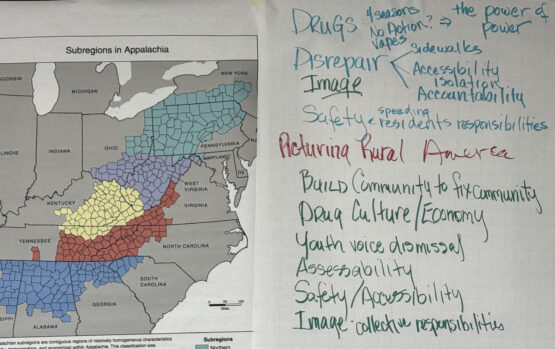 Subregions in Appalachia
WISCONSIN
MICHIGAN
NEW YORK
ILLINOIS
INDIANA
OHIO
PENNSYLVANIA
MARYLAND
DE
WEST
VIRGINIA
VIRGINIA
KENTUCKY
TENNESSEE
NORTH CAROLINA
SOUTH
CAROLINA
GEORGIA
ALABAMA
SIPPI
Miles
alachian subregions are contiguous regions of relatively homogeneous characteristics
Subregions
Northern
DRUGS 4 seasons
No Action? ⇒ the power of
power
Vapes
Disrepair < sidewalks
Accessibility
isolation
Accountability
Image
Safety < speeding
residents responsibilities
Picturing Rural America
BUILD Community to fix community
Drug Culture/Economy
Youth voice dismissal
Assessability
Safety/Accessibility
Image - collective responsibilities